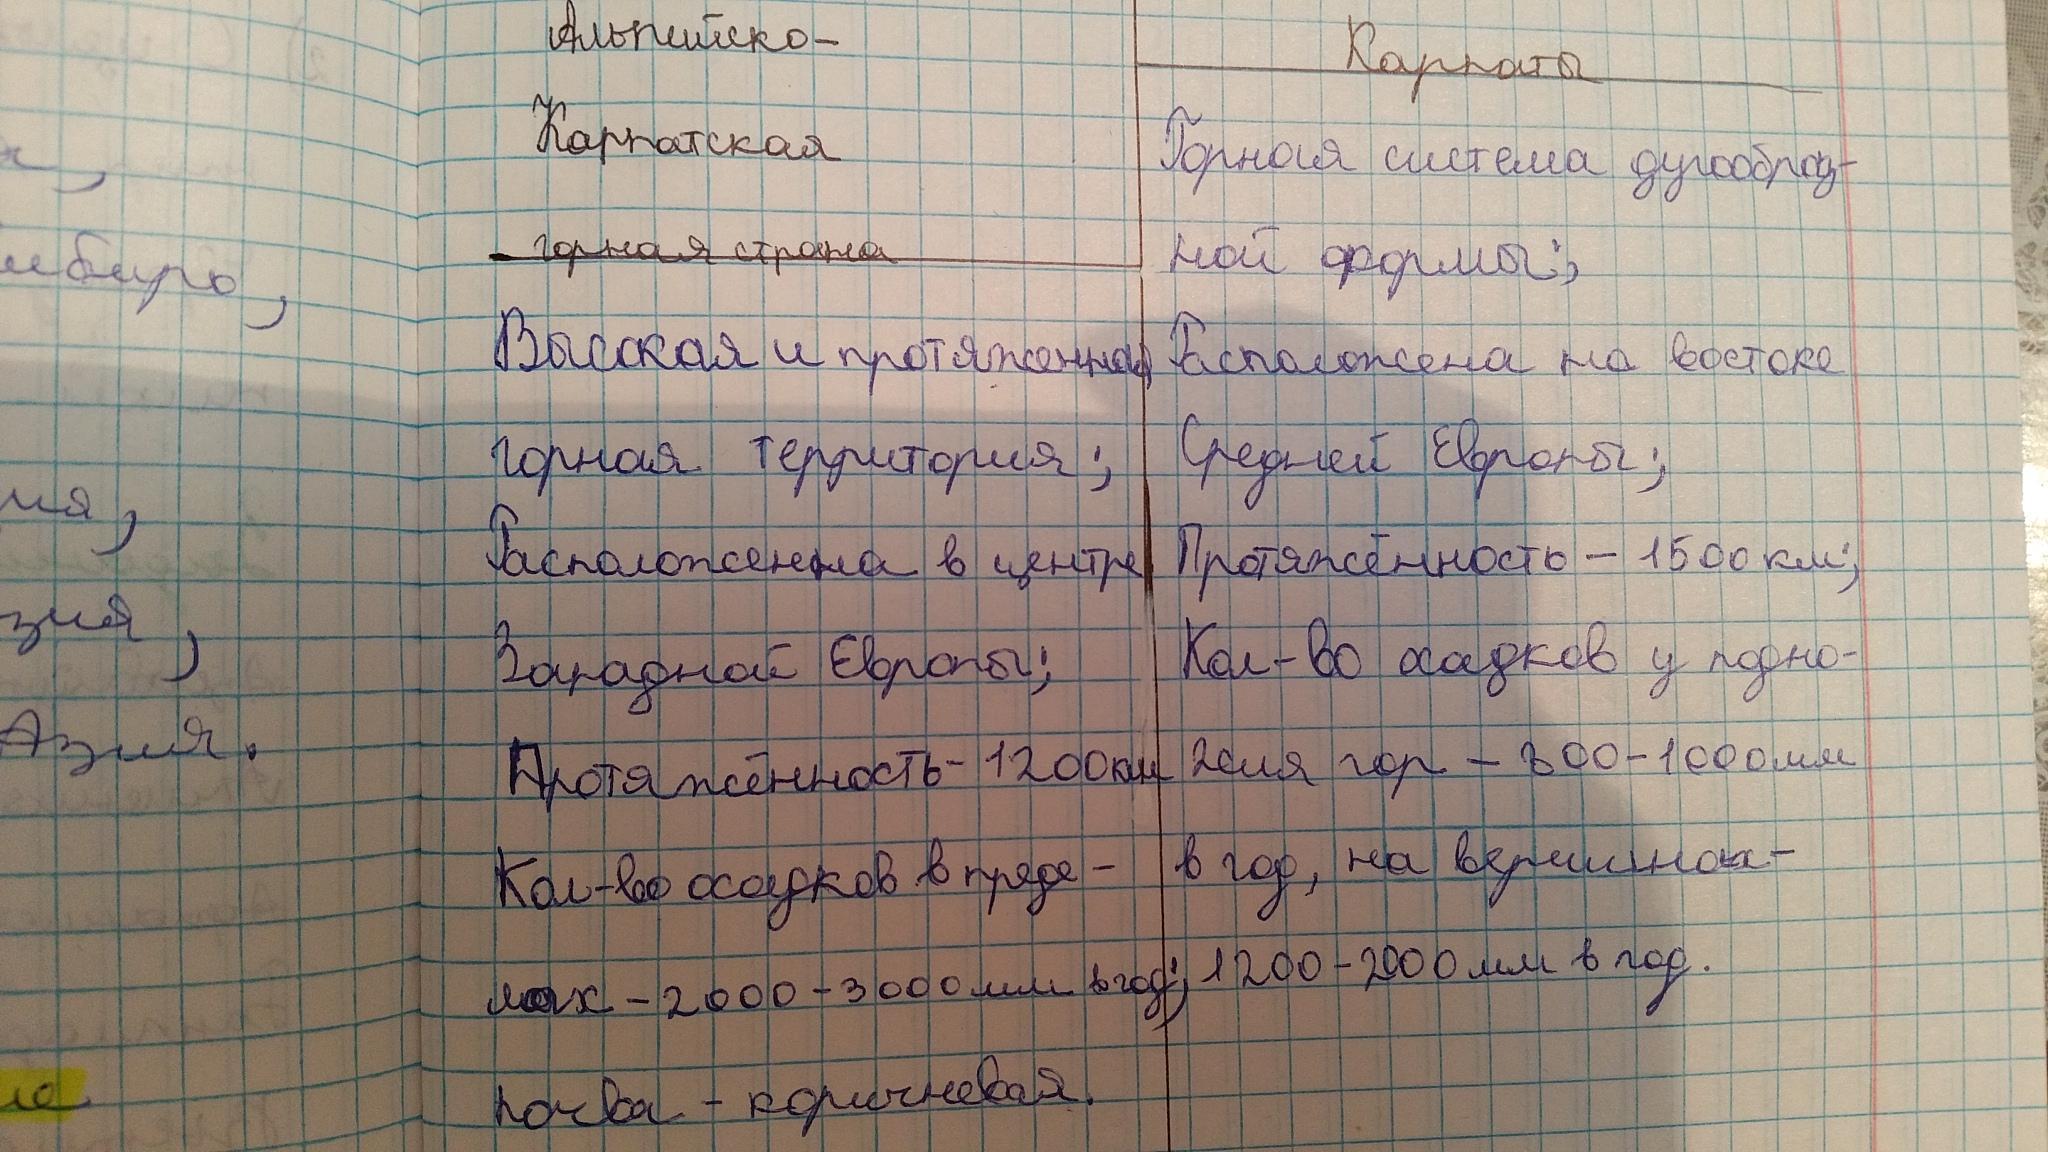 Альпийско-
Карпатская
горная страна
Высокая и протяженная
горная территория;
Расположенна в центре
Западной Европы;
Протяжённость - 1200км
Кол-во осадков в преде-
лах - 2000 - 3000 мм в год;
почва - коричневая.
Карпаты
Горная система дугообраз-
ной формы;
Расположена на востоке
Средней Европы;
Протяжённость - 1500 км;
Кол-во осадков у подно-
жия гор - 800-1000мм
в год, на вершинах-
1200-2000 мм в год.
Азия.